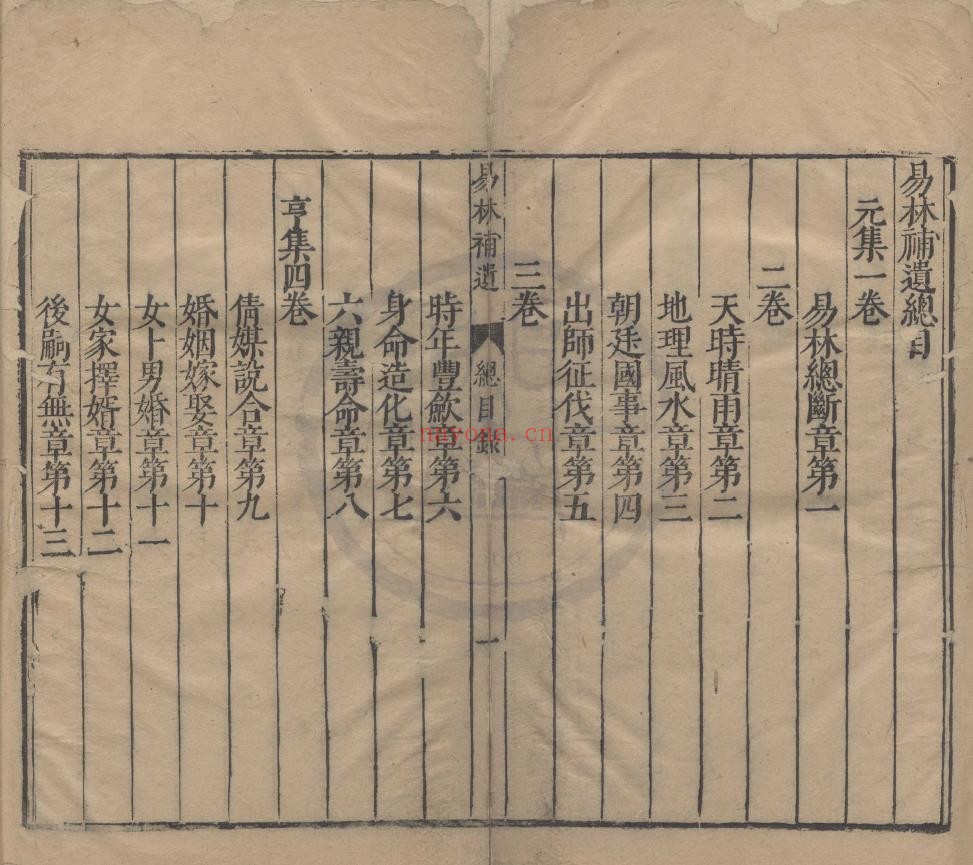 易林補遺總目
元集一卷
易林總斷章第一
二卷
天時晴雨章第二
地理風水章第三
朝廷國事章第四
出師征伐章第五
三卷
易林補遺 總目錄 一
時年豐歉章第六
身命造化章第七
六親壽命章第八
亨集四卷
倩媒說合章第九
婚姻嫁娶章第十
女卜男婚章第十一
女家擇婿章第十二
後嗣有無章第十三
nayona.cn